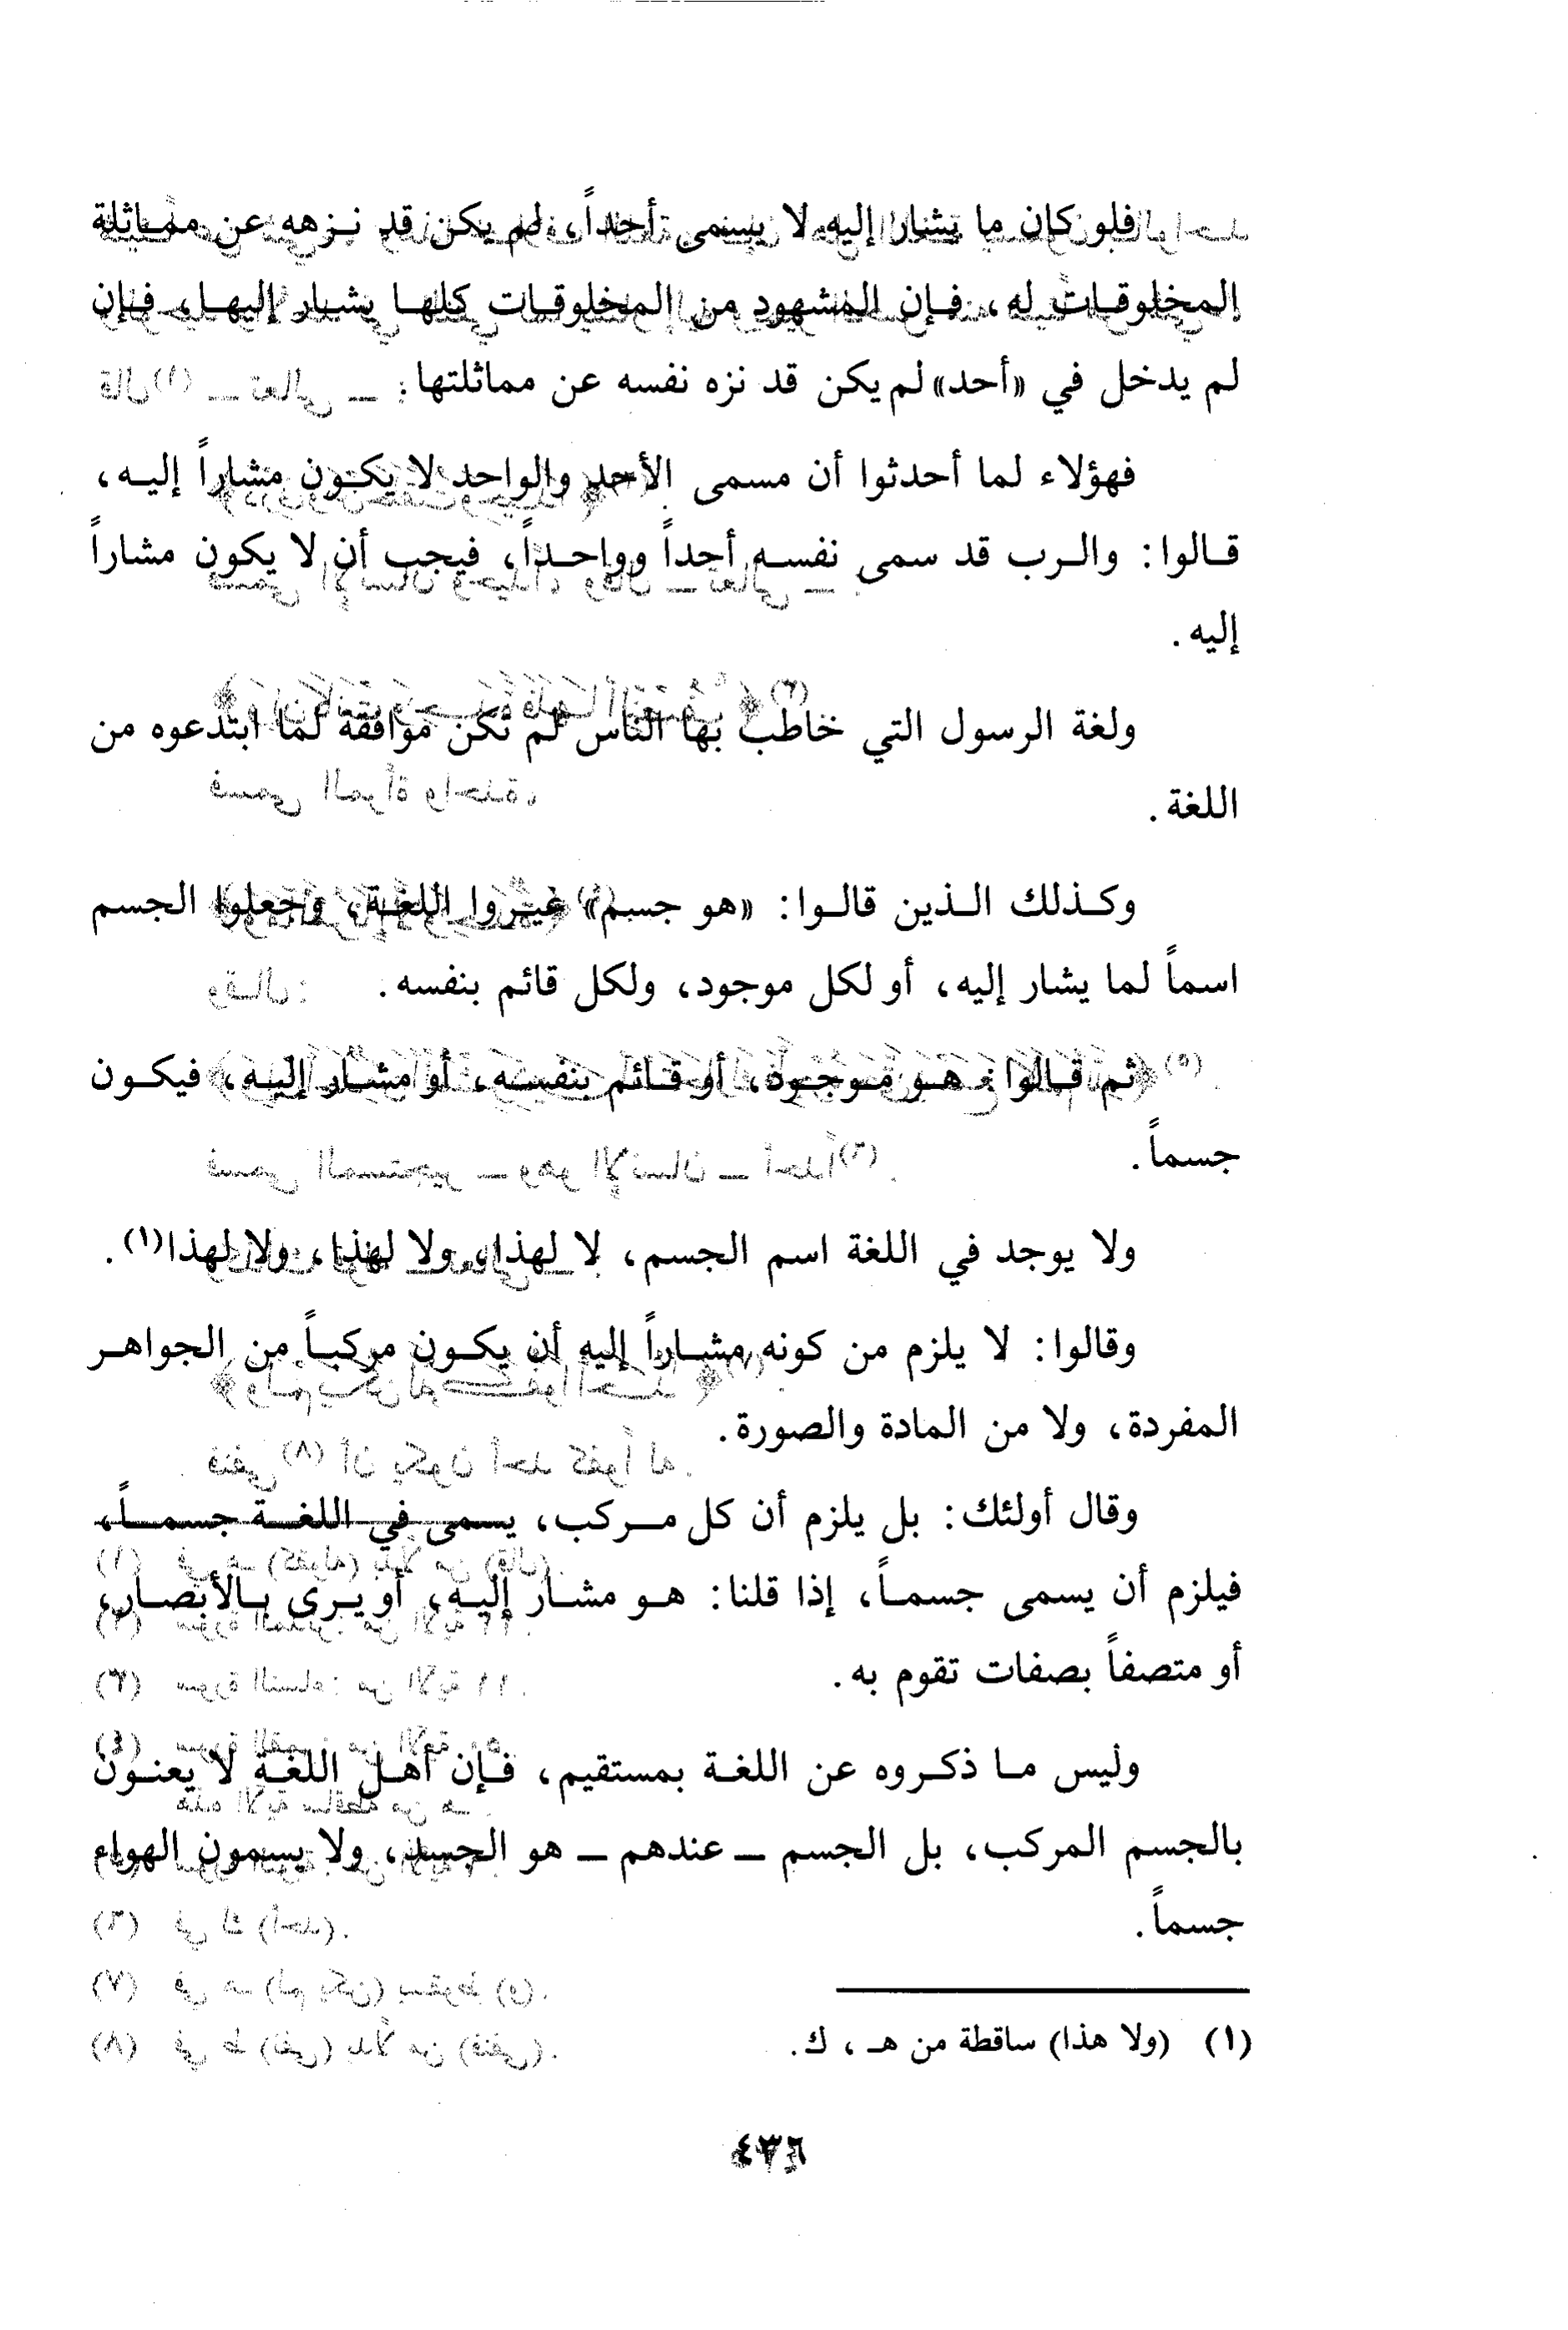 فلو كان ما يشار إليه لا يسمى أحداً، لم يكن قد نـزهه عن ممـاثلة
المخلوقـات له، فـإن المشهود من المخلوقـات كلهـا يشـار إليهـا، فـإن
لم يدخل في «أحد» لم يكن قد نزه نفسه عن مماثلتها.
فهؤلاء لما أحدثوا أن مسمى الأحد والواحد لا يكـون مشاراً إليـه،
قـالوا: والـرب قد سمى نفسـه أحداً وواحـداً، فيجب أن لا يكون مشاراً
إليه.
ولغة الرسول التي خاطب بها الناس لم تكن موافقة لما ابتدعوه من
اللغة.
وكـذلك الـذين قالـوا: «هو جسم» غيـروا اللغـة، وجعلوا الجسم
اسماً لما يشار إليه، أو لكل موجود، ولكل قائم بنفسه.
ثم قـالوا: هـو مـوجـود، أو قـائم بنفسـه، أو مشـار إليـه، فيكـون
جسماً.
ولا يوجد في اللغة اسم الجسم، لا لهذا، ولا لهذا، ولا لهذا(١).
وقالوا: لا يلزم من كونه مشـاراً إليه أن يكـون مركبـاً من الجواهـر
المفردة، ولا من المادة والصورة.
وقال أولئك: بل يلزم أن كل مـركب، يسمى في اللغـة جسمـاً،
فيلزم أن يسمى جسمـاً، إذا قلنا: هـو مشـار إليـه، أو يـرى بـالأبصـار،
أو متصفاً بصفات تقوم به.
وليس مـا ذكـروه عن اللغـة بمستقيم، فـإن أهـل اللغـة لا يعنـون
بالجسم المركب، بل الجسم ــ عندهم ــ هو الجسد، ولا يسمون الهواء
جسماً.
(١) (ولا هذا) ساقطة من هـ، ك.
٤٣٦